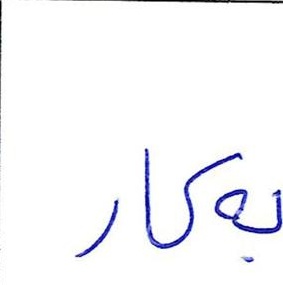 بەکار